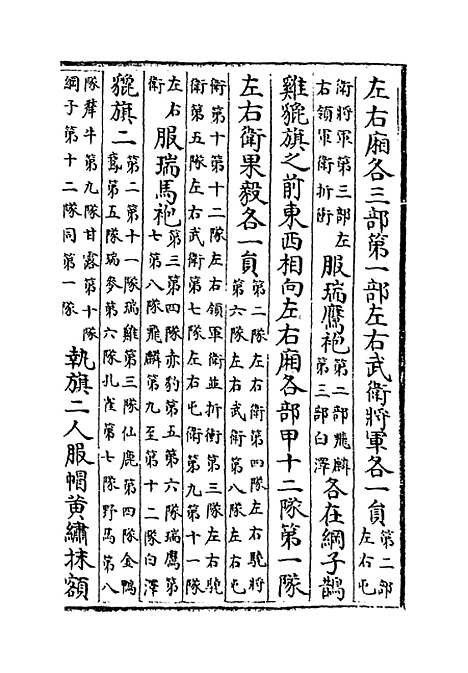 左右廂各三部第一部左右武衛將軍各一員第二部左右屯
衛將軍第三部左右領軍衛折衝服瑞鷹袍第二部飛麟第三部白澤各在綱子鵲
雞貔旗之前東西相向左右廂各部甲十二隊第一隊
左右衛果毅各一員第二隊左右衛第四隊左右驍將第六隊左右武衛第八隊左右屯
衛第十第十二隊左右領軍衛並折衝第三隊左右驍衛第五隊左右武衛第七隊左右屯衛第九第十一隊
左右衛服瑞馬袍第三第四隊赤豹第五第六隊瑞鷹第七第八隊飛麟第九至第十二隊白澤
貔旗二第二第十一隊瑞雞第三隊仙鹿第四隊金第五隊瑞參第六隊孔雀第七隊野馬第八
隊犛牛第九隊甘露第十隊綱子第十二隊同第一隊執旗二人服帽黃繡抹額